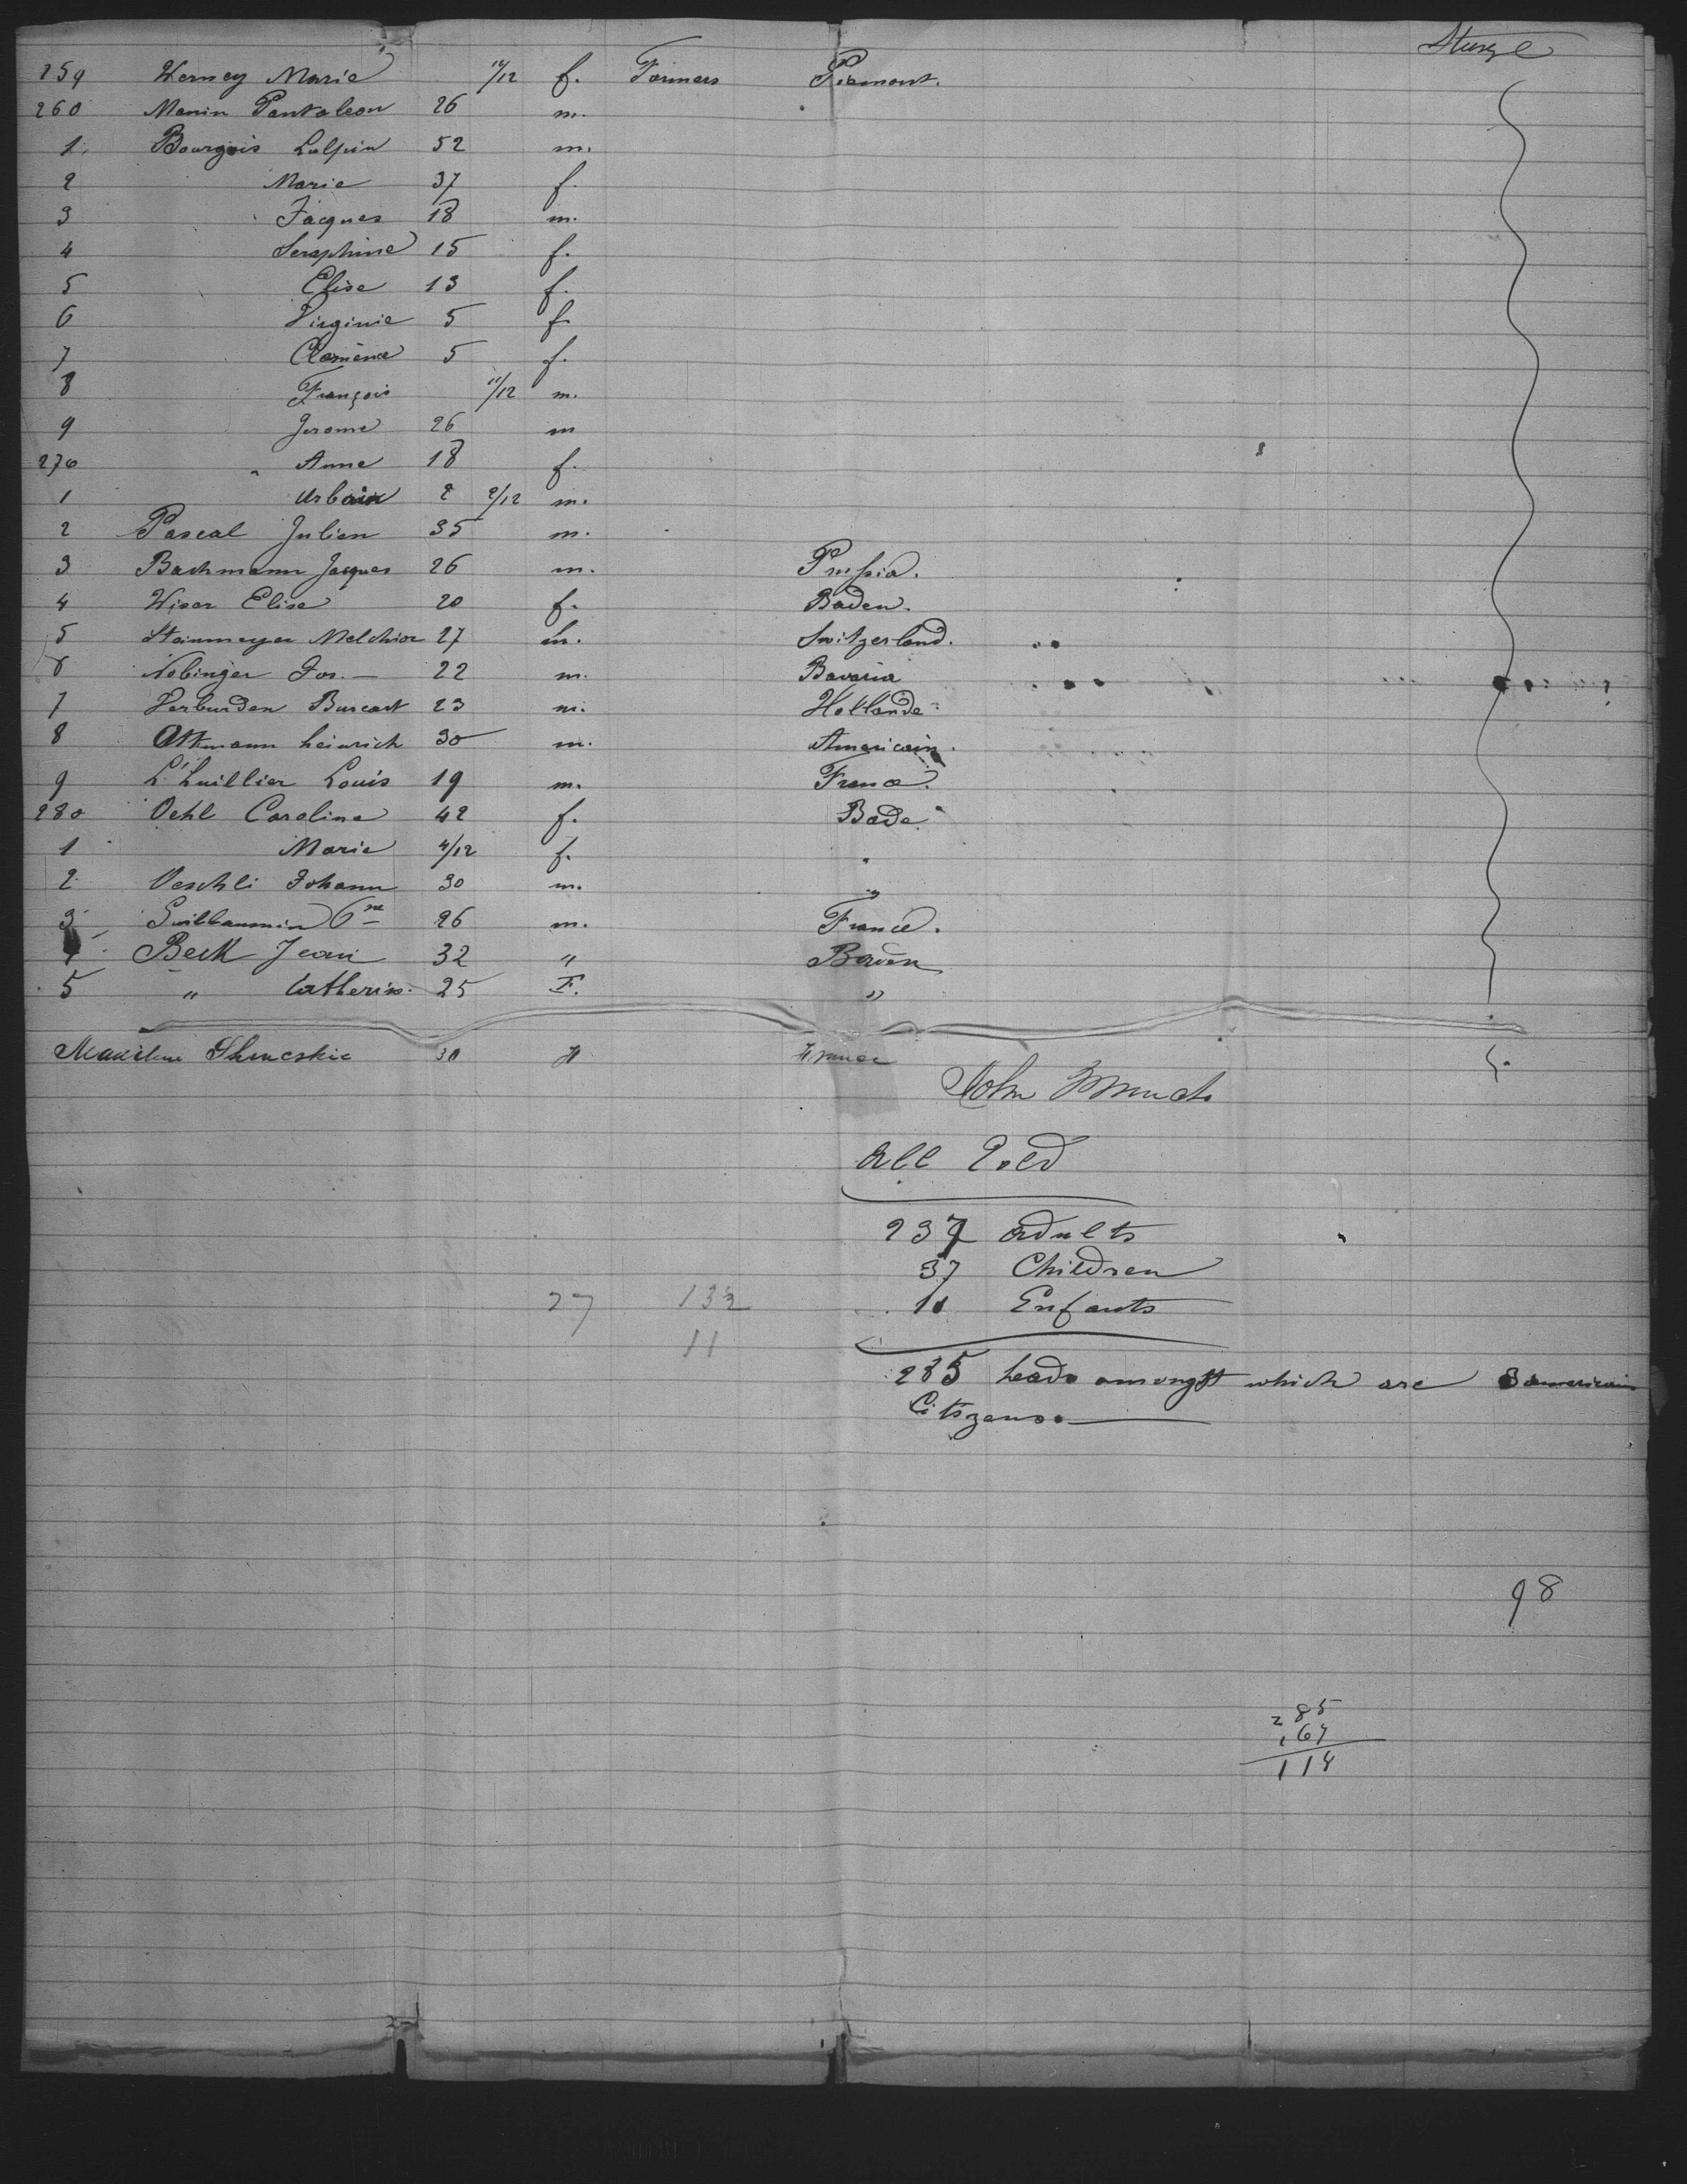 Sturge
259 Werney Marie 11/12 f. Farmers Piemont.
260 Manin Pantaleon 26 m.
1 Bourgois Lulpin 52 m.
2 Marie 37 f.
3 Jacques 18 m.
4 Seraphine 15 f.
5 Elise 13 f.
6 Virginie 5 f.
7 Clomence 5 f.
8 François 11/12 m.
9 Jerome 26 m
270 " Anne 18 f.
1 Urbain 2 2/12 m.
2 Pascal Julien 35 m.
3 Bachmann Jacques 26 m. Prussia.
4 Wiser Elise 20 f. Baden.
5 Steinmeyer Melchior 27 m. Switzerland.
6 Nobinger Jos. — 22 m. Bavaria
7 Verburden Burcart 23 m. Hollande
8 Ottmann heinrich 30 m. Americain.
9 L'huillier Louis 19 m. France.
280 Oehl Caroline 42 f. Bade.
1 Marie 4/12 f. "
2 Oeschli Johann 30 m. "
3 Guillaumin 26 m. France.
4 Beck Jean 32 " Baden
5 " Catherine. 25 F. "
30 France
John
all Told
237 adults
37 Children
27 132 11 Enfants
11
285 heads amongst which are 3 americain
Citizens.
98
285
167
118